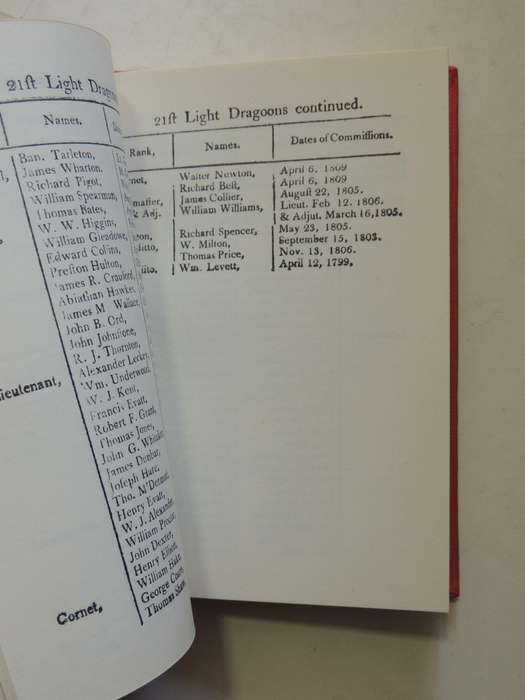 21ſt Light Dragoons
Names.
Ban. Tarleton,
James Wharton,
Richard Pigot,
William Spearman,
Thomas Bates,
W. W. Higgins,
William Gleadowe,
Edward Collins,
Preſton Hulton,
James R. Craufurd,
Abiathan Hawkes,
James M Wallace,
John B. Ord,
John Johnſtone,
R. J. Thornton,
Alexander Lecky,
ieutenant, Wm. Underwood,
W. J. Kent,
Francis Evatt,
Robert F. Grant,
Thomas Jones,
John G.
James Dunbar,
Joſeph Hare,
Tho. M'Dermott,
Henry Evatt,
W. J. Alexander,
William Proctor,
John Dexter,
Henry Elliott,
William
George
Cornet, Thomas
21ſt Light Dragoons continued.
Rank, Names. Dates of Commiſſions.
rnet, Walter Newton, April 6, 1809
Richard Beſt, April 6, 1809
maſter, James Collier, Auguſt 22, 1805.
& Adj. William Williams, Lieut. Feb 12. 1806.
& Adjut. March 16, 1805.
eon, Richard Spencer, May 23, 1805.
ditto, W. Milton, September 15, 1803.
Thomas Price, Nov. 13, 1806.
Wm. Levett, April 12, 1799,